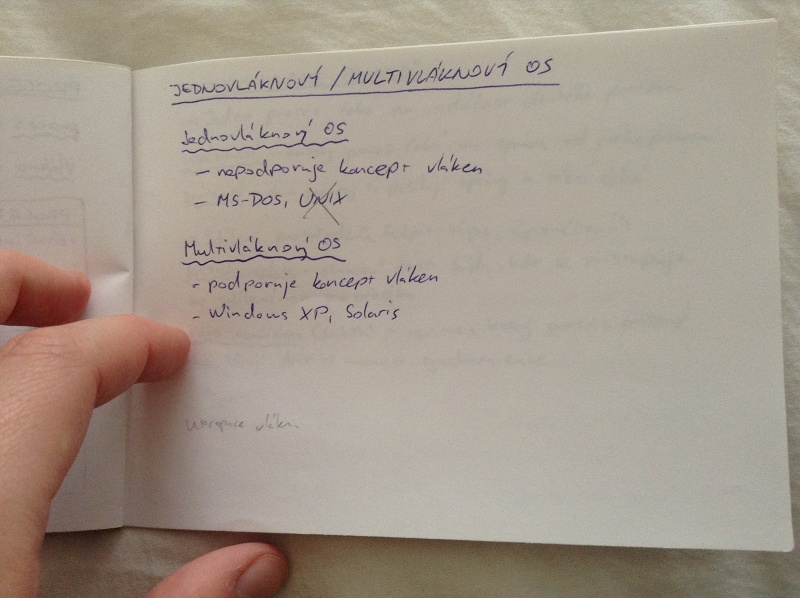 JEDNOVLÁKNOVÝ / MULTIVLÁKNOVÝ OS
Jednovláknový OS
- nepodporuje koncept vláken
- MS-DOS, UNIX
Multivláknový OS
- podporuje koncept vláken
- Windows XP, Solaris
vláken